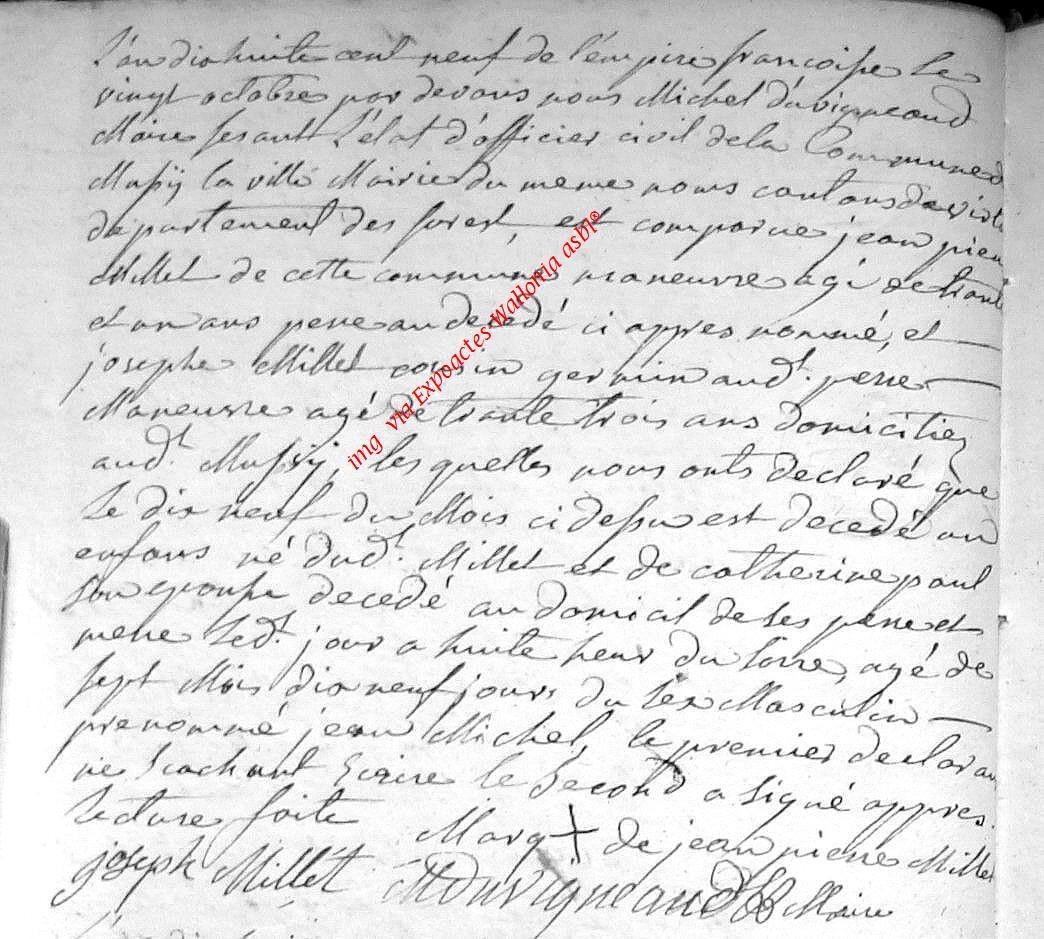 L'an dix huite cent neuf de l'empire francoise le
vingt octobre par devans nous Michel duvigneaud
Maire fesant l'état d'officier civil de la Commune d
Mussÿ la ville Mairie du meme nous cantons de virto
departement des forest, est comparue jean pierr
Millet de cette commune maneuvre agé de trante
et un ans perre au decedé ci appres nommé, et
josephe Millet cousin germin aud.t perre
Maneuvre agé de trante trois ans domiciliez
aud.t Mussÿ, les quelles nous onts declaré que
le dix neuf du Mois ci dessu est decedé un
enfans né dud.t Millet et de catherine paul
son epouse decedé au domicil de ses perre et
merre led.t jour a huite heur du soire, agé de
sept Mois dix neuf jours du sex Masculin
prenommé jean Michel, le premier declaran
ne scachant Ecrire le second a signé appres
lecture faite Marq X de jean pierre Millet
joseph Millet MDuvigneaud Maire
img via Expoactes-wallonia asbl®